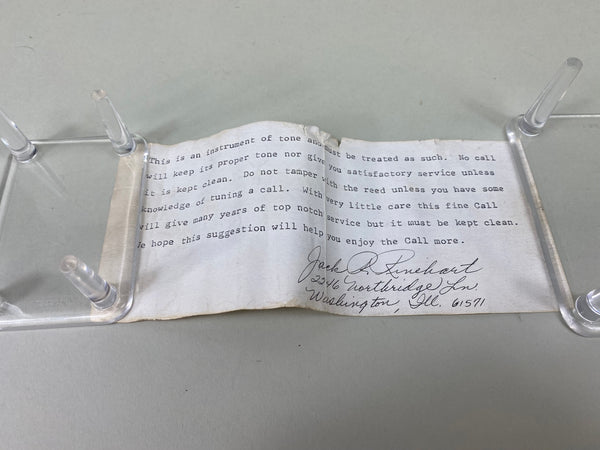 This is an instrument of tone and must be treated as such. No call
will keep its proper tone nor give you satisfactory service unless
it is kept clean. Do not tamper with the reed unless you have some
knowledge of tuning a call. With very little care this fine Call
will give many years of top notch service but it must be kept clean.
We hope this suggestion will help you enjoy the Call more.
Jack R. Rinehart
2246 Northridge Ln.
Washington, Ill. 61571